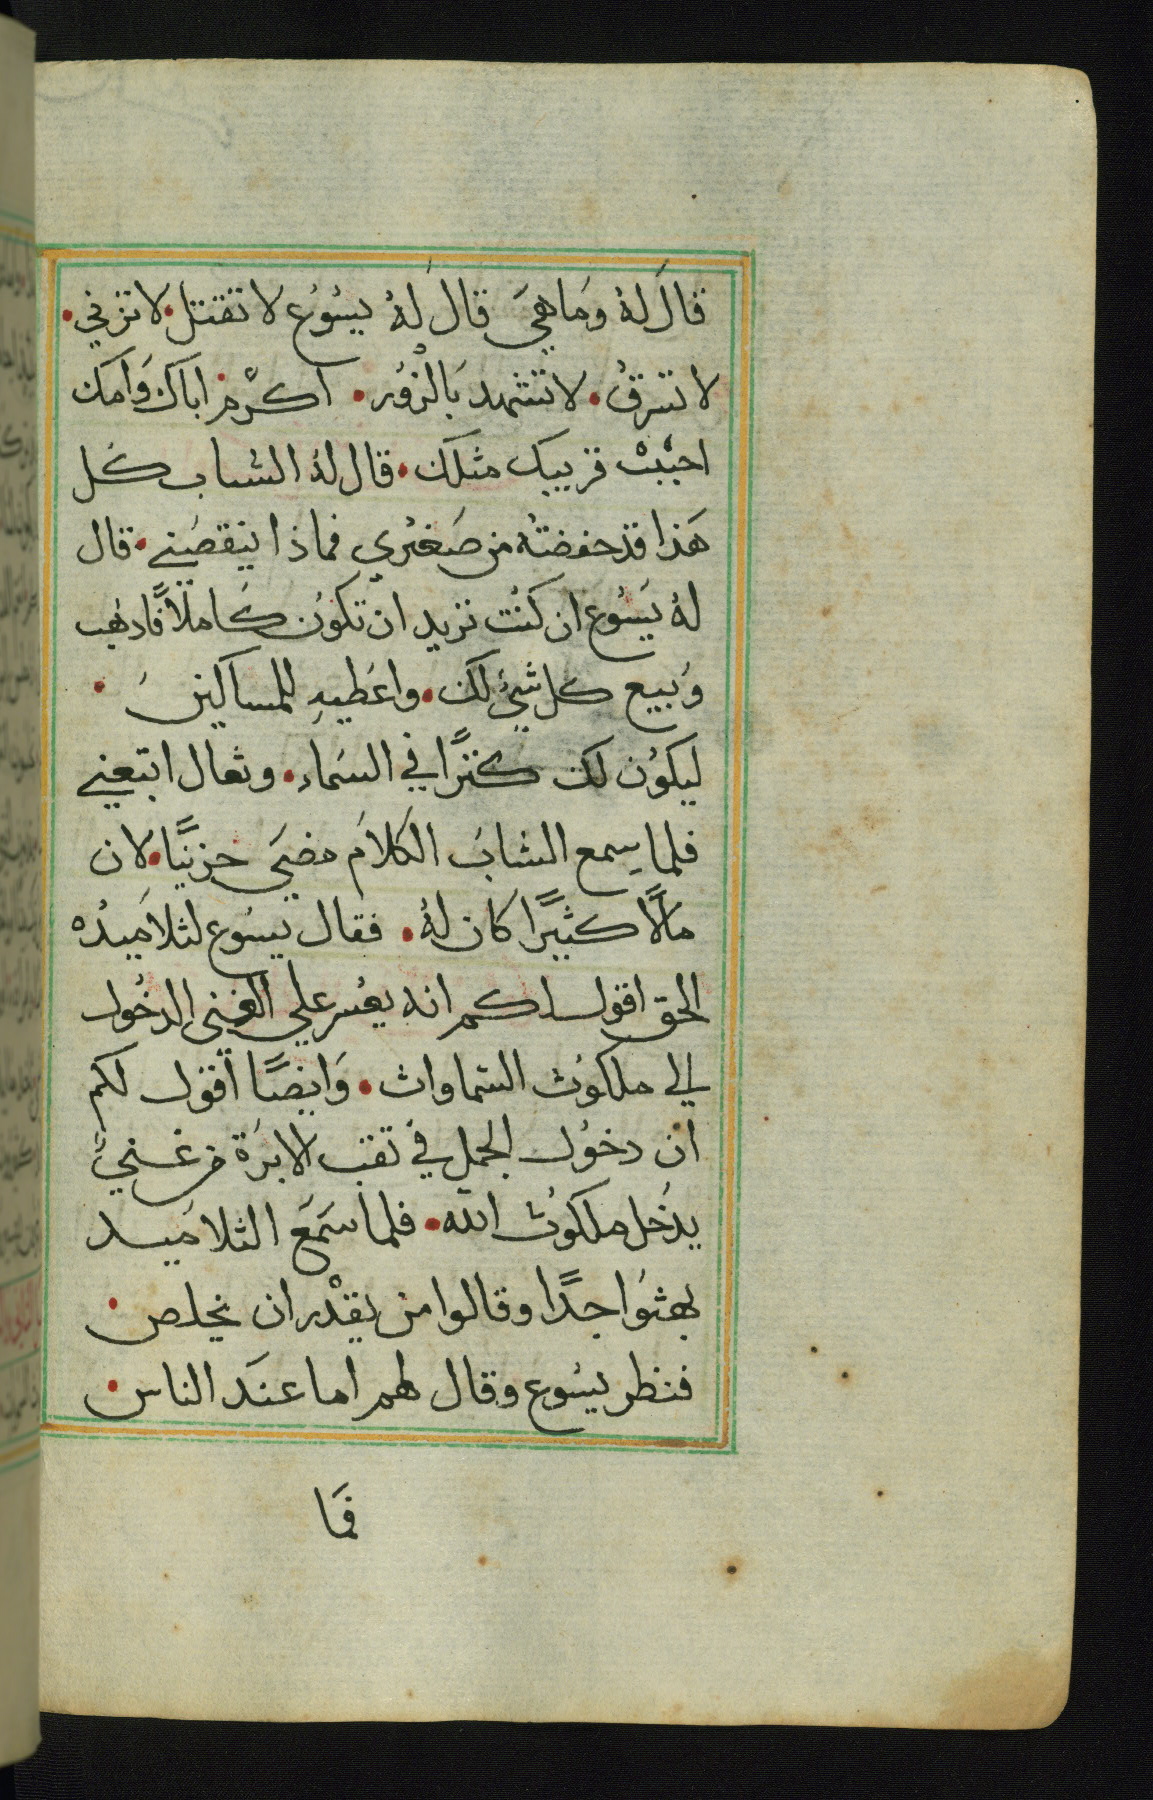 قالَ لهُ ومَا هيَ قال لهُ يسُوُع لا تقتل • لا تزني •
لا تسرقُ • لا تشهد بَالزوُر • اكرْم اباكَ وَامك
احبْبْ قريبك مثلك • قال لهُ الشاب كل
هَذا قدْ حفضتهُ من صَغرْي فماذا ينقصَني • قال
لهُ يَسُوع ان كنُت تريد ان تكوُن كَاملاً فادهب
وَبيع كل شيُ لك • واعَطيهِ للمساكينَ •
ليكوُن لك كنزًا في السَماء • وتعال ابتعني
فلما سِمع الشابَ الكلاَم مضيَ حزينًا • لان
مَالًا كثيرًا كان لهُ • فقال يسُوع لثلاَميدُه
الحق اقول لكم انه يعُسر علي الغني الدخُول
الي ملكوُث السَماواث • وَايضًا اقول لكم
ان دخوُل الجمل في تقب الابرَة من غني
يدخُل ملكوُث الله • فلما سَمَعَ الثلاميد
بهثوُا جدًا وقالوا من يقدْر ان يخلص •
فنظر يسُوع وقال لهم اما عندَ الناس •
فمَا